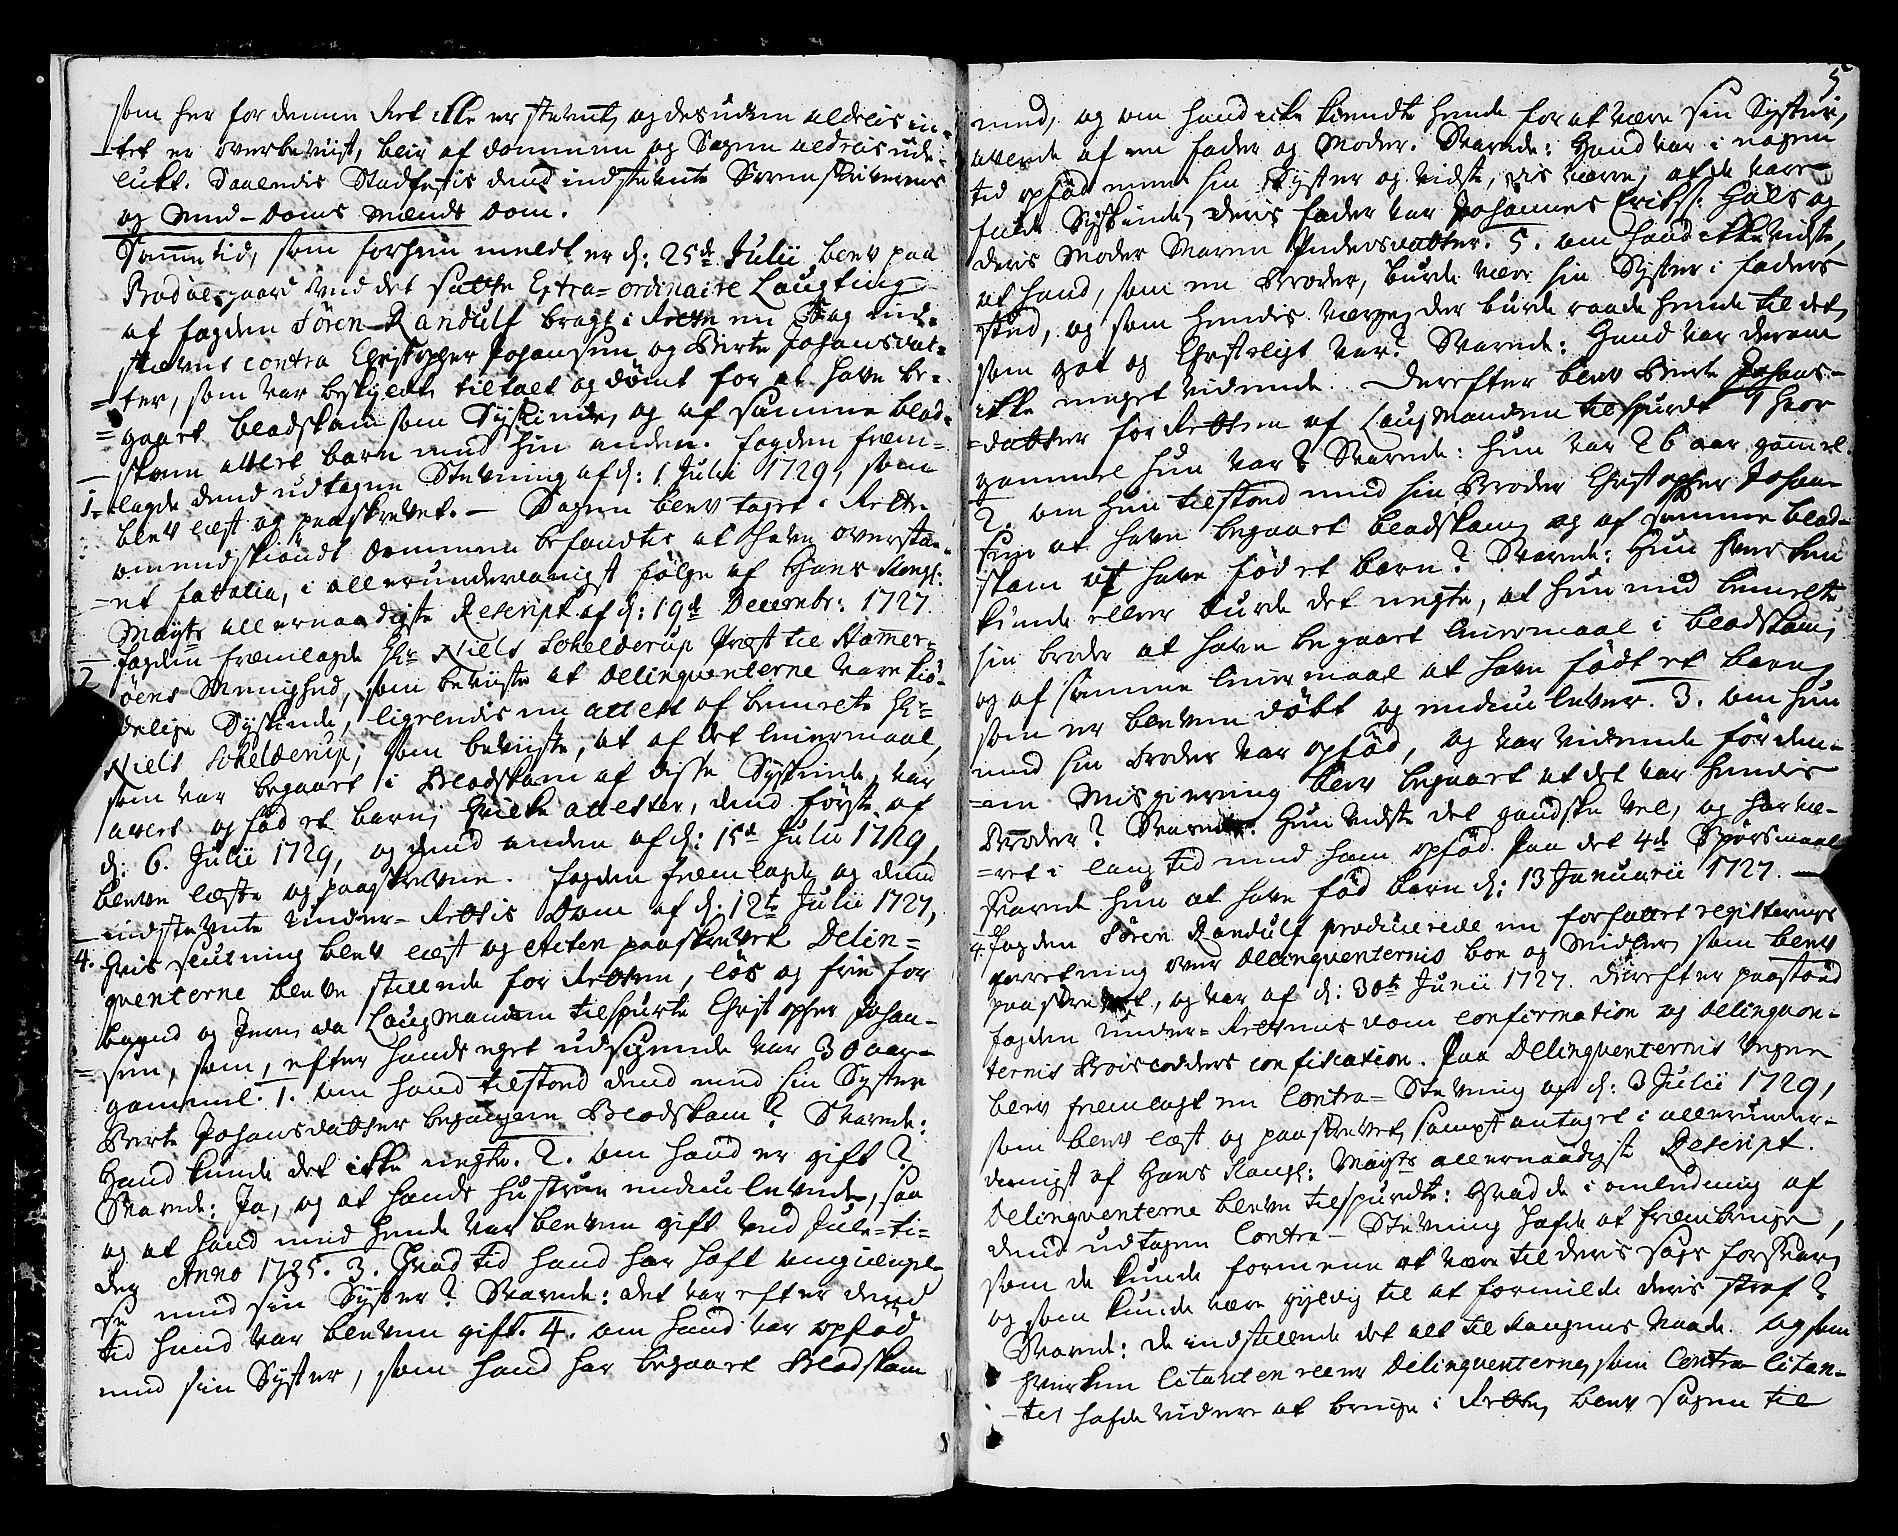 som her for denne Ret ikke er stevnt, og desuden aldeelis in-
tet er overbeviist, bliv af dommen og Sagen aldeelis ude-
lukt. Saaledis Stadfestis dend indstevnte Sorenskriverens
og Med-Doms Mænds Dom.
Samme tid, som forhen meldt er d: 25de Julii blev paa
Bodøegaard ved det satte Extra-ordinaire Laugting
af fogden Sören Randulf bragt i Rette en Sag ind-
stævnt contra Christopher Johansen og Berte Johansdat-
ter, som var beskyldte tiltalt og dömt for at have be-
gaaet blodskam som Syskinde, og af samme blod-
skam avlet barn med hin anden. fogden frem-
1. lagde dend udtagne Stevning af d: 1 Julii 1729, som
blev læst og paaskrevet. — Sagen blev taget i Rette
omendskiöndt dommen befandtes at have oversta-
et fatalia, i allerunderdanigst fölge af Hans Kongl:
Mayts allernaadigste Rescript af d: 19de Decembr: 1727.
fogden fremlagde Hr Niels Schelderup Præst til Hammer-
2 öens Menighed, som beviiste at Delinquenterne vare kiö-
delige Syskinde, ligeledis en attest af bemelte Hr
Niels Schelderup, som beviiste, at af det leiermaal,
som var begaaet i Blodskam af disse Syskinde, var
avlet og föd et barn; hvilke attester, dend förste af
d: 6. Julii 1729, og dend anden af d: 15de Julii 1729,
bleve læste og paaskrevne. fogden fremlagde og dend
indstevnte Under-Rettis Dom af d: 12te Julii 1727,
4. hvis slutning blev læst og acten paaskrevet Delin-
qventerne bleve stillede for Retten, lös og frie for
baand og Jern, da Laugmanden tilspurte Christopher Johan-
sen, som, efter hands eget udsigende var 30 aar
gammel. 1. om hand tilstoed dend med sin Syster
Berte Johansdatter begangne Blodskam? Svarede:
Hand kunde det ikke negte. 2. om hand er gift?
Svarede: Ja, og at hands hustrue endnu levede, saa
og at hand med hende var bleven gift ved Jule-ti-
der Anno 1725. 3. Hvad tid hand har haft omgiengel-
se med sin Syster? Svarede: det var efter dend
tid hand var bleven gift. 4. om hand var opföd
med sin Syster, som hand har begaaet Blodskam
5
med, og om hand icke kiendte hende for at være sin Syster,
avlede af en fader og Moder. Svarede: Hand var i nogen
tid opföd med sin Syster og vidste, dis værre, at de vare
fulde Syskinde, deris fader var Johannes Erichs: Hals og
deris Moder Maren Andersdatter. 5. om hand ikke vidste,
at hand, som en Broder, burde være sin Syster i faders
sted, og som hendis værge, der burde raade hende til det,
som got og Christeligt var? Svarede: Hand var derom
ikke meget vidende. Derefter blev Berte Johans-
datter for Retten af Laugmanden tilspurdt 1 hvor
gammel hun var? Svarede: hun var 26 aar gammel.
2. om hun tilstoed med sin Broder Christopher Johan-
sen at have begaaet blodskam, og af samme blod-
skam at have föd et barn? Svarede: Hun hverken
kunde eller burde det negte, at hun med bemelte
sin broder at have begaaet leiermaal i blodskam,
og af samme leiermaal at have födt et barn,
som er bleven döbt og endnu lever. 3. om hun
med sin Broder var opföd, og var vidende för den-
ne Misgierning blev begaaet at det var hendis
Broder? Svarede: Hun vidste det gandske vel, og har væ-
ret i lang tid med ham opföd. Paa det 4de Spörsmaal
Svarede hun at have föd barn d: 13 Januarii 1727. —
4. fogden Sören Randulf producerede en forfattet registerings
forretning over Delinquenternis boe og Midler, som blev
paaskrevet, og var af d: 30te Junii 1727. Derefter paastod
fogden Under-Rettens dom confirmation og delinqven-
ternis Boisloddes confiscation. Paa Delinqventernis Vegne
blev fremlagt en Contra-Stevning af d: 3 Julii 1729,
som blev læst og paaskrevet, sampt antaget i allerunder-
danigst af Hans Kongl: Mayts allernaadigst Rescript.
Delinqventerne bleve tilspurdte: hvad de i anledning af
dend udtagen Contra-Stevning hafde at frembringe,
som de kunde formene at være til deris Sags forsvar,
og som kunde være gyldig til at formilde deris straf?
Svarede: de indstillede det alt til Kongens Naade. Og som
hverken Citanten eller Delinqventerne, som Contra Citan-
ter hafde videre at bringe i Rette, blev Sagen til